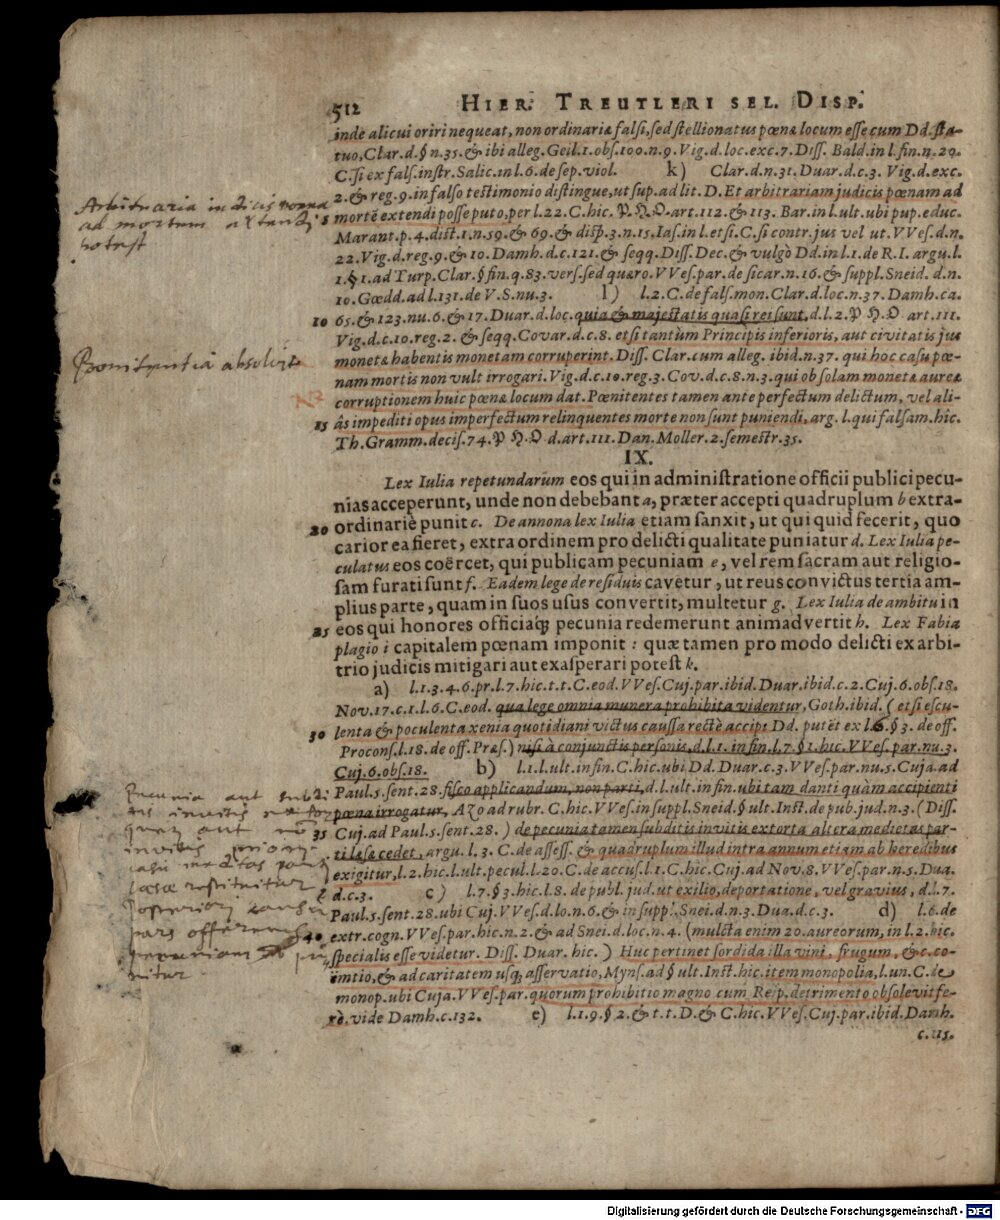 512 HIER. TREUTLERI SEL. DISP.
inde alicui oriri nequeat, non ordinariæ falsi, sed stellionatus pœnæ locum esse cum Dd. sta-
tuo, Clar. d. § n. 35. & ibi alleg. Geil. 1. obs. 100. n. 9. Vig. d. loc. exc. 7. Diss. Bald. in l. fin. n. 29.
C. si ex fals. instr. Salic. in l. 6. de sep. viol. k) Clar. d. n. 31. Duar. d. c. 3. Vig. d. exc.
2. & reg. 9. in falso testimonio distingue, ut sup. ad lit. D. Et arbitrariam judicis pœnam ad
5 mortē extendi posse puto, per l. 22. C. hic. P. H. O. art. 112. & 113. Bar. in l. ult. ubi pup. educ.
Marant. p. 4. dist. 1. n. 59. & 69. & disp. 3. n. 15. Ias. in l. etsi. C. si contr. jus vel ut. VVes. d. n.
22. Vig. d. reg. 9. & 10. Damh. d. c. 121. & seqq. Diss. Dec. & vulgò Dd. in l. 1. de R. I. argu. l.
1. § 1. ad Turp. Clar. § fin. q. 83. vers. sed quæro. VVes. par. de sicar. n. 16. & suppl. Sneid. d. n.
10. Gœdd. ad l. 131. de V. S. nu. 3. l) l. 2. C. de fals. mon. Clar. d. loc. n. 37. Damh. ca.
10 65. & 123. nu. 6. & 17. Duar. d. loc. quia & majestatis quasi rei sunt, d. l. 2. P H O art. 111.
Vig. d. c. 10. reg. 2. & seqq. Covar. d. c. 8. etsi tantùm Principis inferioris, aut civitatis jus
monetæ habentis monetam corruperint. Diss. Clar. cum alleg. ibid. n. 37. qui hoc casu pœ-
nam mortis non vult irrogari. Vig. d. c. 10. reg. 3. Cov. d. c. 8. n. 3. qui ob solam monetæ aureæ
corruptionem huic pœnæ locum dat. Pœnitentes tamen ante perfectum delictum, vel ali-
15 âs impediti opus imperfectum relinquentes morte non sunt puniendi, arg. l. qui falsam. hîc.
Th. Gramm. decis. 74. P H O d. art. 111. Dan. Moller. 2. semestr. 35.
IX.
Lex Iulia repetundarum eos qui in administratione officii publici pecu-
nias acceperunt, unde non debebant a, præter accepti quadruplum b extra-
20 ordinariè punit c. De annona lex Iulia etiam sanxit, ut qui quid fecerit, quo
carior ea fieret, extra ordinem pro delicti qualitate puniatur d. Lex Iulia pe-
culatus eos coërcet, qui publicam pecuniam e, vel rem sacram aut religio-
sam furati sunt f. Eadem lege de residuis cavetur, ut reus convictus tertia am-
plius parte, quam in suos usus convertit, multetur g. Lex Iulia de ambitu in
25 eos qui honores officiaq; pecunia redemerunt animadvertit h. Lex Fabia
plagio i capitalem pœnam imponit: quæ tamen pro modo delicti ex arbi-
trio judicis mitigari aut exasperari potest k.
a) l. 1. 3. 4. 6. pr. l. 7. hic. t. t. C. eod. VVes. Cuj. par. ibid. Duar. ibid. c. 2. Cuj. 6. obs. 18.
Nov. 17. c. 1. l. 6. C. eod. qua lege omnia munera prohibita videntur, Goth. ibid. (etsi escu-
30 lenta & poculenta xenia quotidiani victus caussa rectè accipi Dd. putēt ex l. 6. § 3. de off.
Procons. l. 18. de off. Præs.) nisi à conjunctis personis, d. l. 1. in fin. l. 7. § 1. hic. VVes. par. nu. 3.
Cuj. 6. obs. 18. b) l. 1. l. ult. in fin. C. hic. ubi Dd. Duar. c. 3. VVes. par. nu. 5. Cuja. ad
Paul. 5. sent. 28. fisco applicandum, non parti, d. l. ult. in fin. ubi tam danti quàm accipienti
pœna irrogatur, Azo ad rubr. C. hic. VVes. in suppl. Sneid. § ult. Inst. de pub. jud. n. 3. (Diss.
35 Cuj. ad Paul. 5. sent. 28.) de pecunia tamen subditis invitis extorta altera medietas par-
ti læsæ cedet, argu. l. 3. C. de assess. & quadruplum illud intra annum etiam ab heredibus
exigitur, l. 2. hic. l. ult. pecul. l. 20. C. de accus. l. 1. C. hic. Cuj. ad Nov. 8. VVes. par. n. 5. Dua.
d. c. 3. c) l. 7. § 3. hic. l. 8. de publ. jud. ut exilio, deportatione, vel gravius, d. l. 7.
Paul. 5. sent. 28. ubi Cuj. VVes. d. lo. n. 6. & in suppl. Snei. d. n. 3. Dua. d. c. 3. d) l. 6. de
40 extr. cogn. VVes. par. hic. n. 2. & ad Snei. d. loc. n. 4. (mulcta enim 20. aureorum, in l. 2. hic.
specialis esse videtur. Diss. Duar. hic.) Huc pertinet sordida illa vini, frugum, &c. co-
ëmtio, & ad caritatem usq; asservatio, Myns. ad § ult. Inst. hic. item monopolia, l. un. C. de
monop. ubi Cuja. VVes. par. quorum prohibitio magno cum Reip. detrimento obsolevit fe-
rè. vide Damh. c. 132. e) l. 1. 9. § 2. & t. t. D. & C. hic. VVes. Cuj. par. ibid. Damh.
c. 115.
Arbitraria iudicis poena
ad mortem extendi
potest
Poenitentia absolvit
Pecunia aut subdi
tis invitis extor
pars offerens
Digitalisierung gefördert durch die Deutsche Forschungsgemeinschaft - DFG